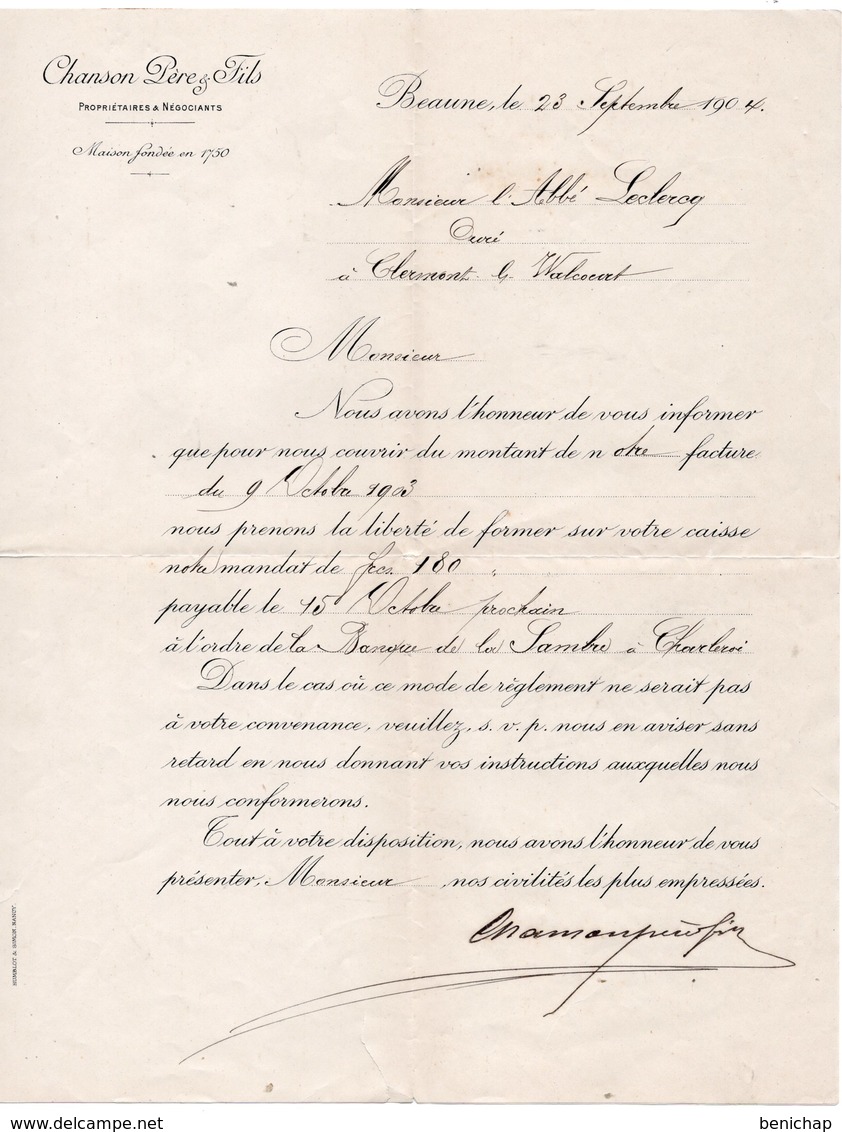 Chanson Père & Fils
PROPRIÉTAIRES & NÉGOCIANTS
Maison fondée en 1750
Beaune, le 23 Septembre 1904.
Monsieur l'Abbé Leclercq
Curé
à Clermont-lz-Walcourt
Monsieur
Nous avons l'honneur de vous informer
que pour nous couvrir du montant de notre facture
du 9 Octobre 1903
nous prenons la liberté de former sur votre caisse
notre mandat de frcs. 180 "
payable le 15 Octobre prochain
à l'ordre de la Banque de la Sambre à Charleroi
Dans le cas où ce mode de règlement ne serait pas
à votre convenance, veuillez, s. v. p. nous en aviser sans
retard en nous donnant vos instructions auxquelles nous
nous conformerons.
Tout à votre disposition, nous avons l'honneur de vous
présenter, Monsieur, nos civilités les plus empressées.
Chanson père & fils
HUMBLOT & SIMON. NANCY.
www.delcampe.net
benichap